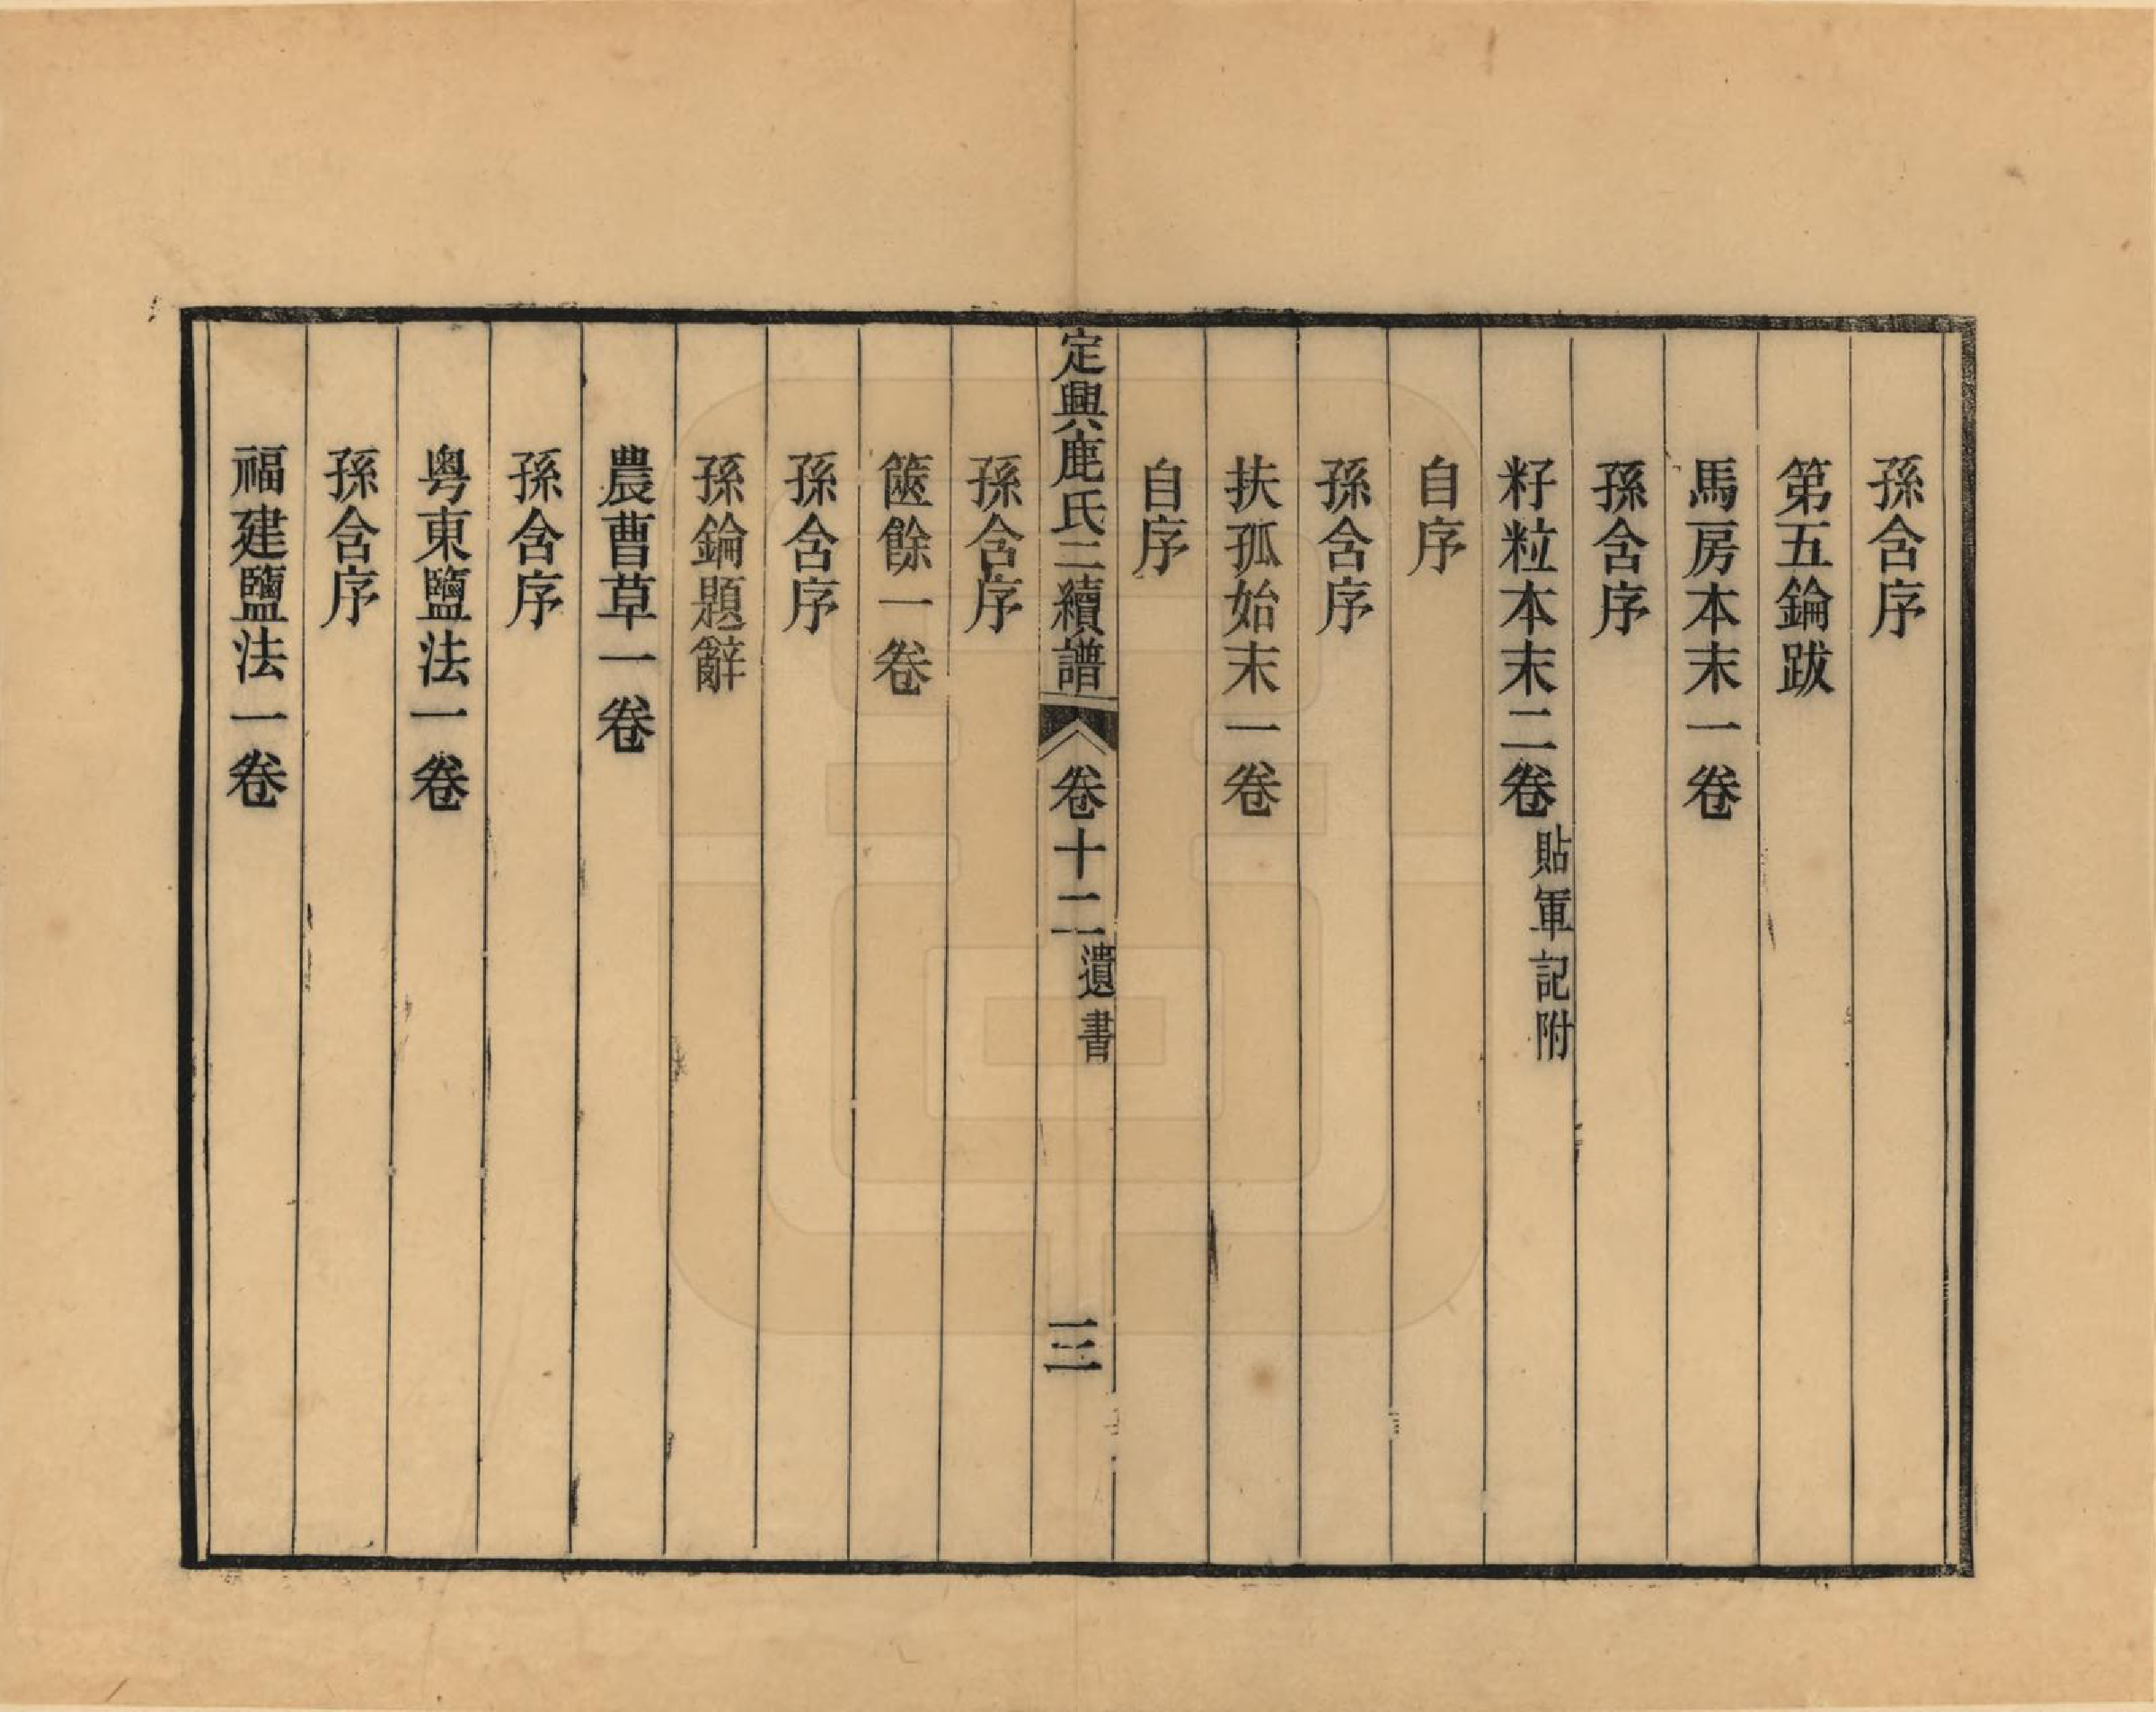 孫含序
第五錀跋
馬房本末一卷
孫含序
籽粒本末二卷貼軍記附
自序
孫含序
扶孤始末一卷
自序
定興鹿氏二續譜 卷十二 遺書 三
孫含序
篋餘一卷
孫含序
孫錀題辭
農曹草一卷
孫含序
粤東鹽法一卷
孫含序
福建鹽法一卷